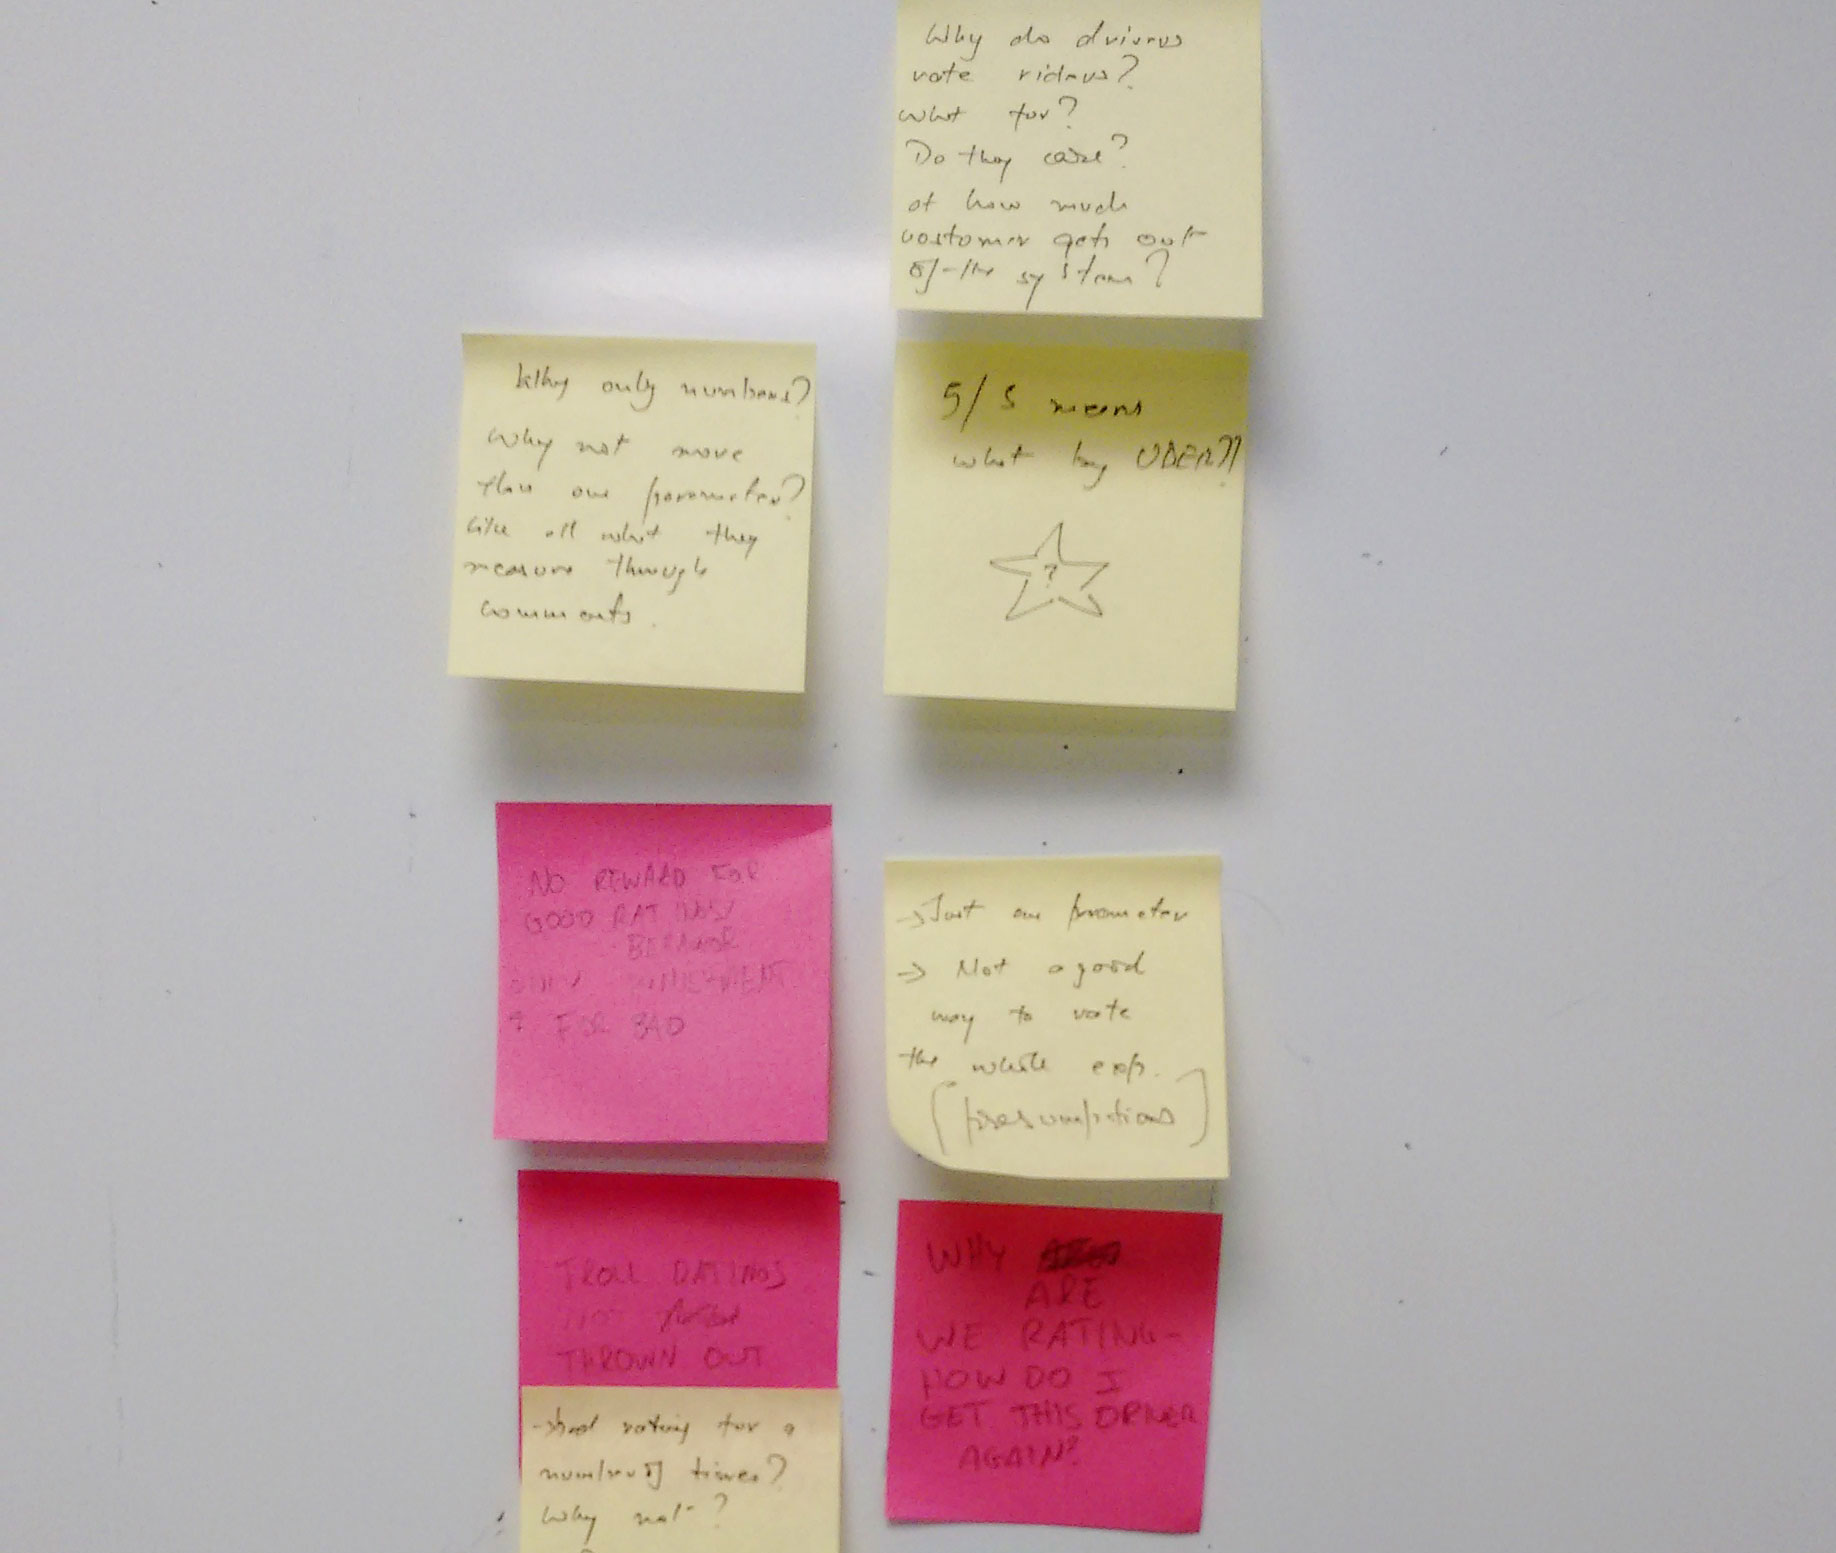 Why do drivers
rate riders?
what for?
Do they care?
of how much
costomer gets out
of the system?
Why only numbers?
Why not more
than one parameter?
Like all what they
measure through
comments.
5/5 means
what by UBER??
?
NO REWARD FOR
GOOD RATINGS/
BEHAVIOR
ONLY PUNISHMENT
FOR BAD
→ Just one parameter
→ Not a good
way to rate
the whole exp.
(presumptions)
TROLL RATINGS
NOT
THROWN OUT
WHY
ARE
WE RATING-
HOW DO I
GET THIS DRIVER
AGAIN?
rating for a
number of times?
Why not?